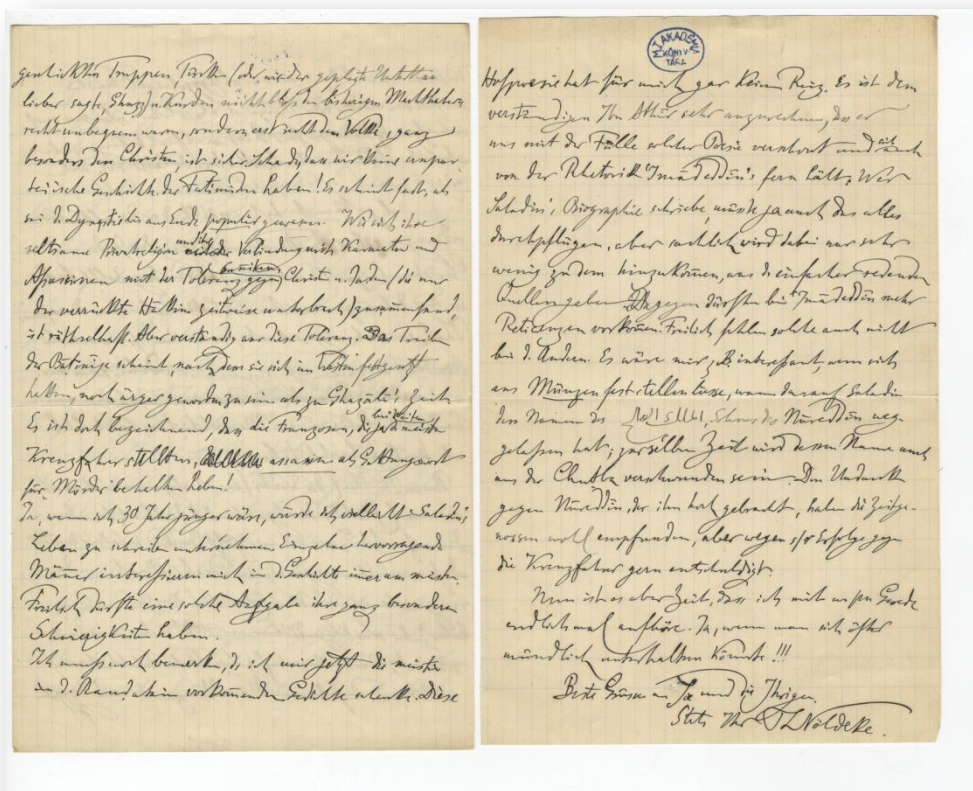 geschickten Truppen, Türken (oder, wie der gepflegte
lieber sagte, Ghuzz) u. Kurden nicht bloss den bisherigen Machthabern
recht unbequem waren, sondern erst recht dem Volke, ganz
besonders den Christen, ist sicher. Schade, dass wir keine unpar-
teiische Geschichte der Fatimiden haben! Es scheint fast, als
sei d. Dynastie bis ans Ende populär gewesen. Wie sich ihre
seltsame Privatreligion und die Verbindung mit Karmaten und
Assassinen mit der Toleranz gegen Christen u. Juden (die nur
der verrückte Hakim zeitweise unterbrach) zusammenfand,
ist räthselhaft. Aber verständig war diese Toleranz. Das Treiben
der Batinije scheint, nachdem sie sich in Syrien festgesetzt
hatten, noch ärger geworden zu sein als zu Ghazali's Zeit.
Es ist doch bezeichnend, dass die Franzosen, die ja bei weitem die meisten
Kreuzfahrer stellten, assassin als Gattungswort
für Mörder behalten haben!
Ja, wenn ich 30 Jahr jünger wäre, würde ich vielleicht Saladin's
Leben zu schreiben unternehmen. Einzelne hervorragende
Männer interessieren mich in d. Geschichte immer am meisten.
Freilich dürfte eine solche Aufgabe ihre ganz besonderen
Schwierigkeiten haben.
Ich muss noch bemerken, dass ich mir jetzt die meisten
in d. Raudatain vorkommenden Gedichte schenke. Diese
M. T. AKADÉMIA
KÖNYV-
TÁRA
Hofpoesie hat für mich gar keinen Reiz. Es ist dem
verständigen Ibn Athir sehr anzurechnen, dass er
uns mit der Fülle solcher Poesie verschont und sich auch
von der Rhetorik 'Imadeddin's fern hält. Wer
Saladin's Biographie schriebe, müsste ja auch das alles
durchpflügen, aber sachlich wird dabei nur sehr
wenig zu dem hinzukommen, was die einfacher redenden
Quellen geben. Dagegen dürften bei 'Imadeddin mehr
Reticenzen vorkommen. Freilich fehlen solche auch nicht
bei d. Andern. Es wäre mir z.B. interessant, wenn sich
aus Münzen feststellen liesse, wann darauf Saladin
den Namen des الملك الصالح, Sohnes des Nureddin weg-
gelassen hat; zur selben Zeit wird dessen Name auch
aus der Chutba verschwunden sein. Den Undank
gegen Nureddin, der ihn hoch gebracht, haben die Zeitge-
nossen wohl empfunden, aber wegen s/r Erfolge gegen
die Kreuzfahrer gern entschuldigt.
Nun ist es aber Zeit, dass ich mit Gerede
endlich mal aufhöre. Ja, wenn man sich öfter
mündlich unterhalten könnte!!!
Beste Grüsse an Sie und die Ihrigen.
Stets Ihr ThNöldeke.